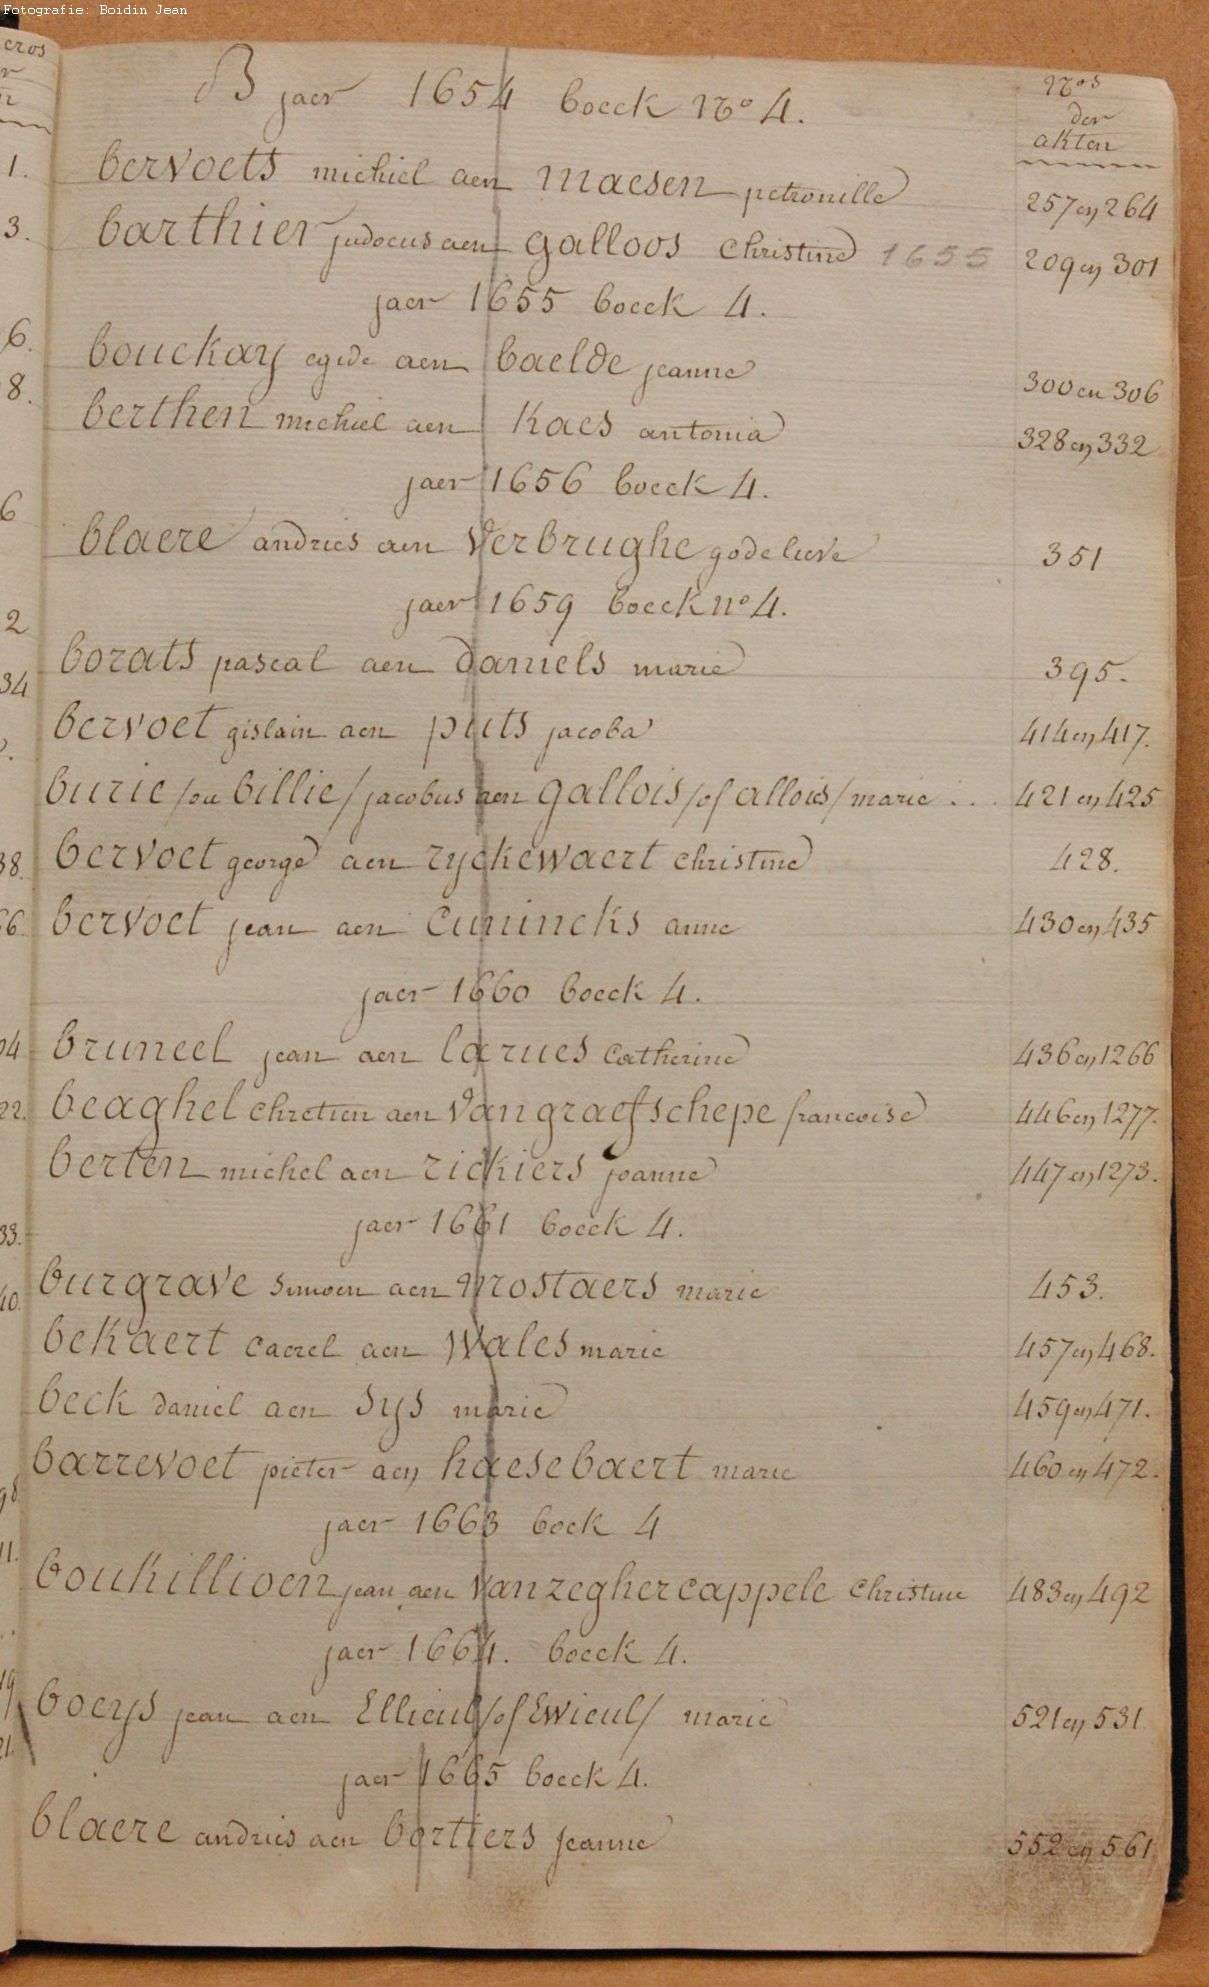 Fotografie: Boidin Jean
B jaer 1654 boeck No 4.
Nos
der
akten
bervoets michiel aen maesen petronille 257 en 264
barthier judocus aen galloos christine 1655 209 en 301
jaer 1655 boeck 4.
bouckay egide aen baelde jeanne 300 en 306
berthen michiel aen Kaes antonia 328 en 332
jaer 1656 boeck 4.
blaere andries aen verbrughe godelieve 351
jaer 1659 boeck no 4.
borats pascal aen daniels marie 395.
bervoet gislain aen puts jacoba 414 en 417.
burie /ou billie/ jacobus aen gallois /of allois/ marie ... 421 en 425
bervoet george aen ryckewaert christine 428.
bervoet jean aen cunincks anne 430 en 435
jaer 1660 boeck 4.
bruneel jean aen larues catherine 436 en 1266
beaghel chretien aen vangraefschepe francoise 446 en 1277.
berten michel aen rickiers joanne 447 en 1273.
jaer 1661 boeck 4.
burgrave simoen aen mostaers marie 453.
bekaert caerel aen wales marie 457 en 468.
beck daniel aen sys marie 459 en 471.
barrevoet pieter aen haesebaert marie 460 en 472.
jaer 1663 bock 4
boukillioen jean aen vanzeghercappele christine 483 en 492
jaer 1664. boeck 4.
boeys jean aen Ellieul /of Ewieul/ marie 521 en 531
jaer 1665 boeck 4.
blaere andries aen bertiers jeanne 552 en 561